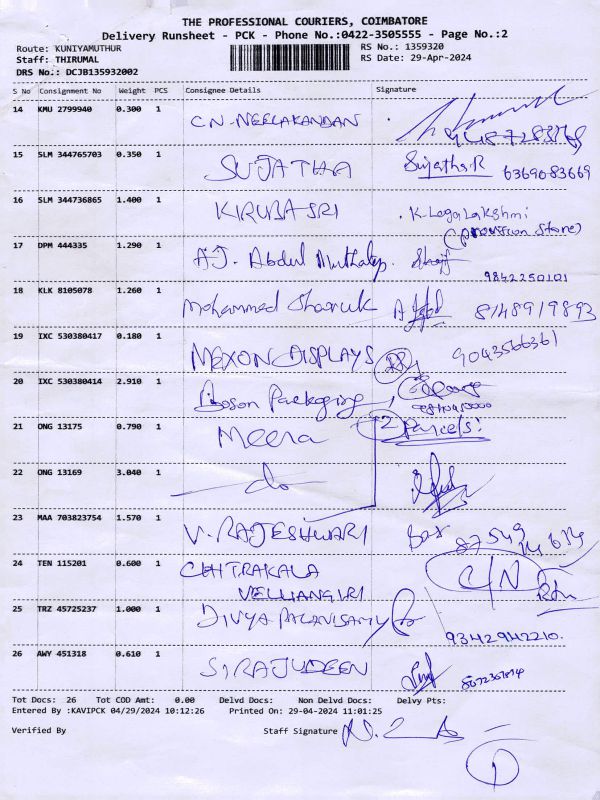 THE PROFESSIONAL COURIERS, COIMBATORE
Delivery Runsheet - PCK - Phone No.:0422-3505555 - Page No.:2
Route: KUNIYAMUTHUR RS No.: 1359320
Staff: THIRUMAL RS Date: 29-Apr-2024
DRS No.: DCJB135932002
S No Consignment No Weight PCS Consignee Details Signature
14 KMU 2799940 0.300 1 C.N. NEELAKANDAN
15 SLM 344765703 0.350 1 SUJATHA Sujatha.R 6369083669
16 SLM 344736865 1.400 1 KIRUBASRI K. Logalakshmi
(provision store)
17 DPM 444335 1.290 1 A.J. Abdul
9842250101
18 KLK 8105078 1.260 1 Mohammed Sharuk 8148919893
19 IXC 530380417 0.180 1 MEXON DISPLAYS 9043566361
20 IXC 530380414 2.910 1 Boson Packaging
21 ONG 13175 0.790 1 Meera 2 Parcels:
22 ONG 13169 3.040 1 do
23 MAA 703823754 1.570 1 V. RAJESHWARI 87549 14634
24 TEN 115201 0.600 1 CHITRAKALA C/N
VELLIANGIRI
25 TRZ 45725237 1.000 1 DIVYA PALANISAMY
9342942210.
26 AWY 451318 0.610 1 SIRAJUDEEN
Tot Docs: 26 Tot COD Amt: 0.00 Delvd Docs: Non Delvd Docs: Delvy Pts:
Entered By :KAVIPCK 04/29/2024 10:12:26 Printed On: 29-04-2024 11:01:25
Verified By Staff Signature